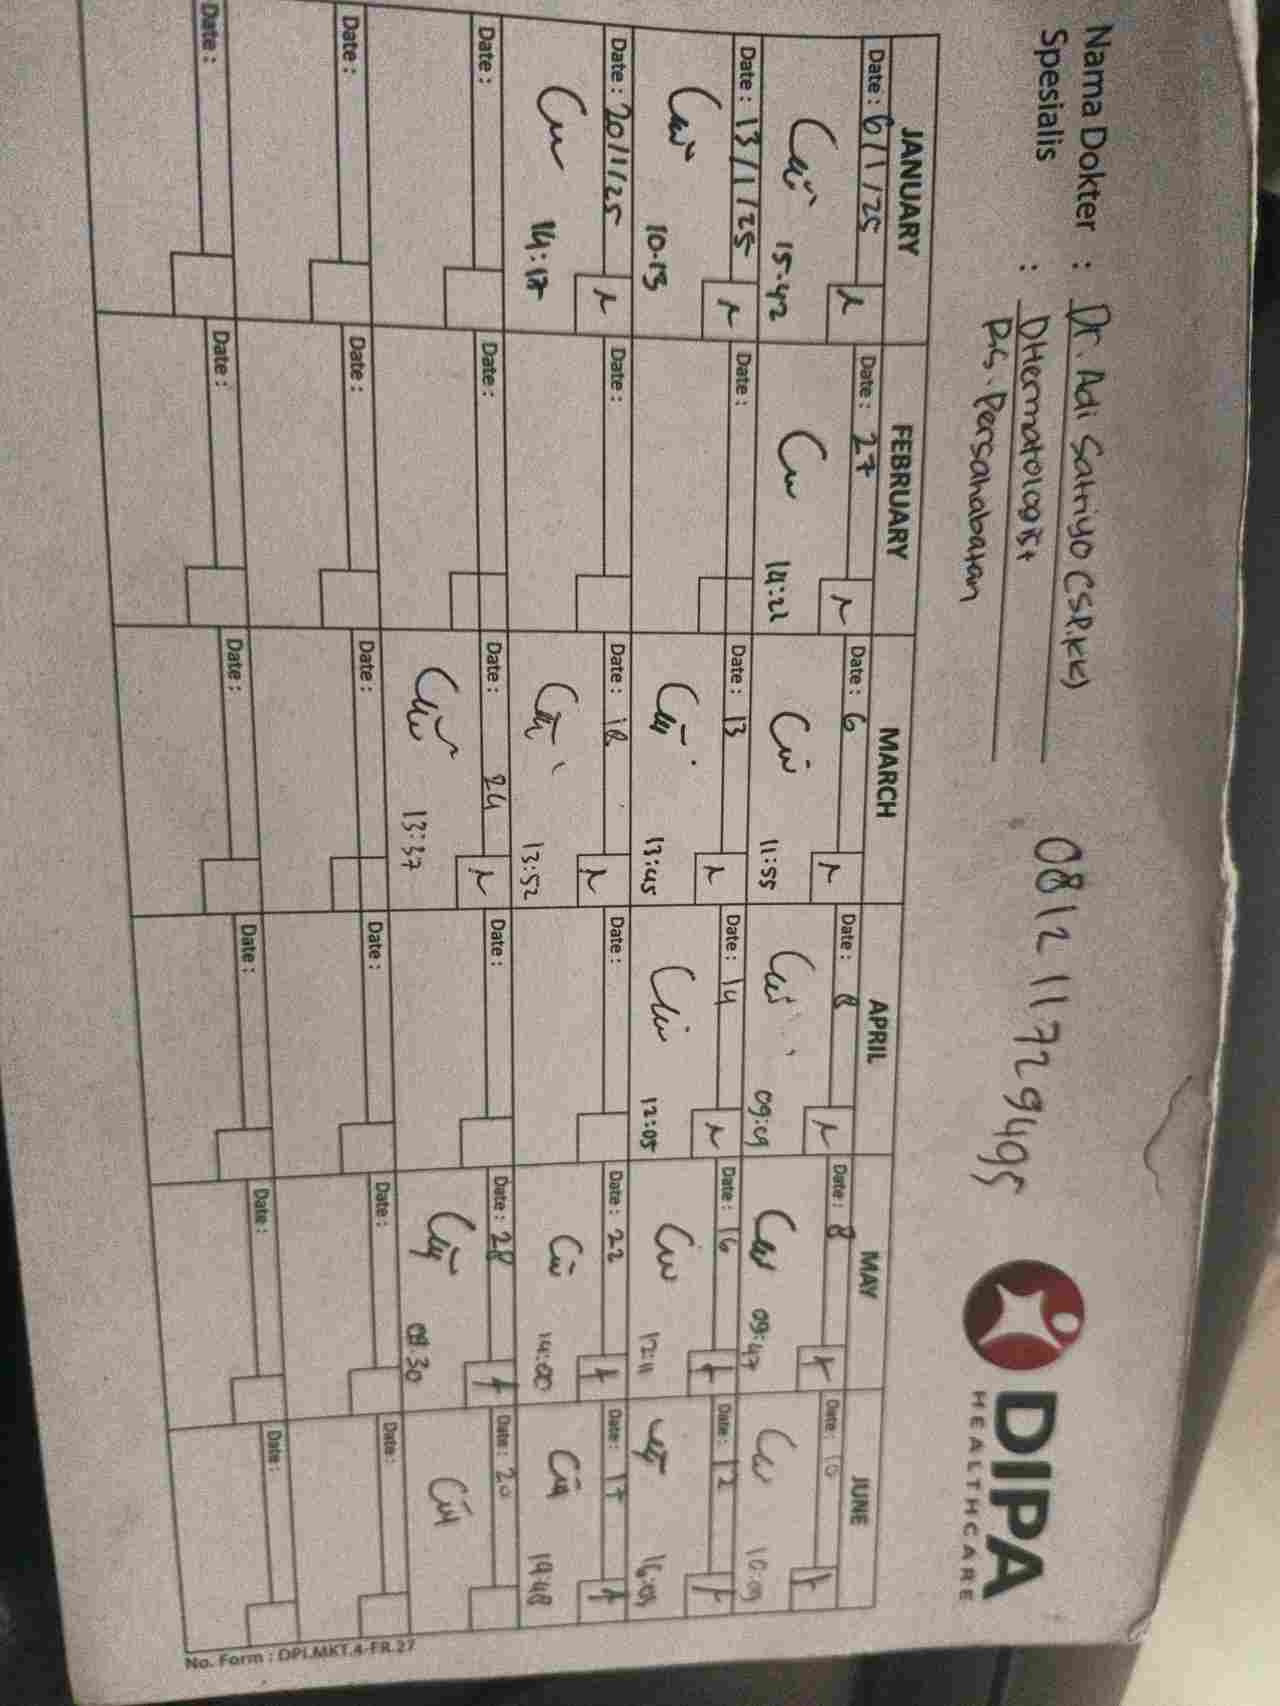 Nama Dokter : Dr. Adi Satriyo (SP.KK)
Spesialis : DHermatologist
R.S. Persahabatan
081211729495
DIPA
HEALTHCARE
JANUARY FEBRUARY MARCH APRIL MAY JUNE
Date : 6/1/25 Date : 27 Date : 6 Date : 8 Date : 8 Date : 10
15.42 14:21 11:55 09:09 09:47 10:09
Date : 13/1/25 Date : Date : 13 Date : 14 Date : 16 Date : 12
10.13 13:45 12:05 12:11 16:09
Date : 20/1/25 Date : Date : 18 Date : Date : 22 Date : 17
14:17 13:52 14:00 19:48
Date : Date : Date : 24 Date : Date : 28 Date : 20
13:37 08.30
Date : Date : Date : Date : Date : Date :
Date : Date : Date : Date : Date : Date :
No. Form : DPI.MKT.4-FR.27